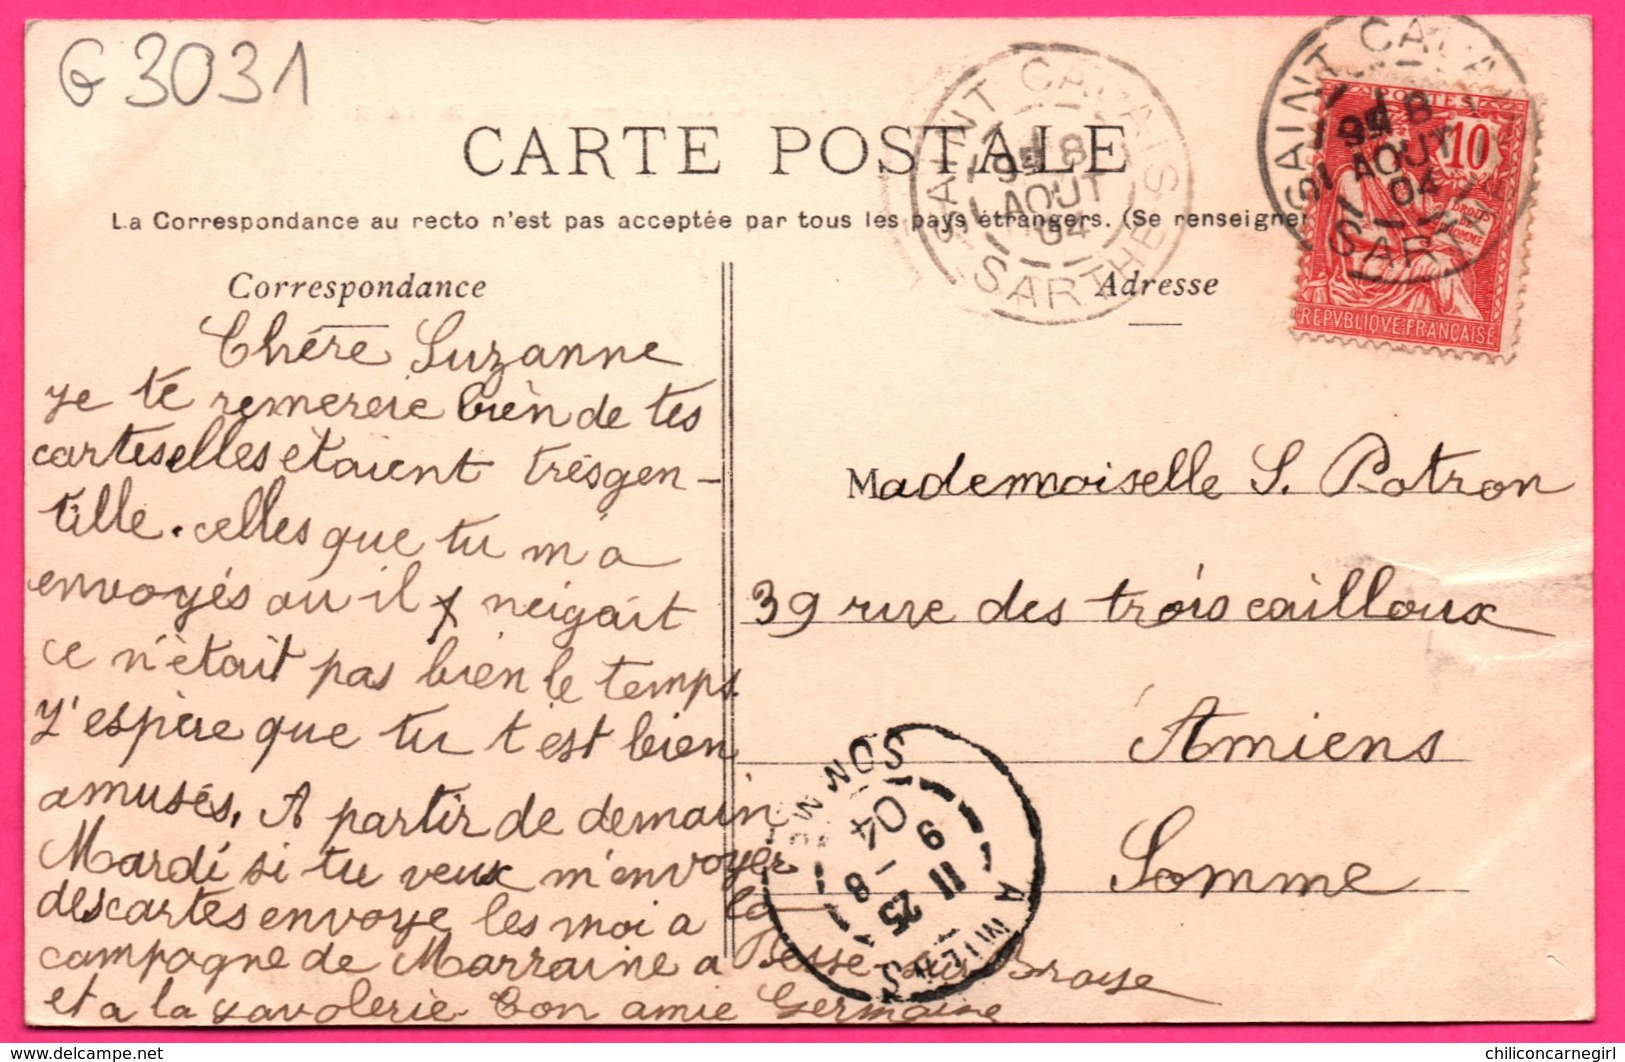 G 3031
CARTE POSTALE
La Correspondance au recto n'est pas acceptée par tous les pays étrangers. (Se renseigner
Correspondance
Adresse
SAINT CALAIS
1 8
AOUT
04
SARTHE
SAINT CALAIS
1 8
AOUT
04
SARTHE
POSTES
10
DROITS DE L'HOMME
REPVBLIQVE FRANÇAISE
Chère Suzanne
je te remercie bièn de tes
carteselles étaient trèsgen-
tille. celles que tu m'a
envoyés ou il y neigait
ce n'était pas bien le temps
J'espère que tu t'est bien
amusés. A partir de demain
Mardi si tu veux m'envoyer
descartesenvoye les moi a la
campagne de Marraine a Besse sur Braye
et a la savolerie. Ton amie Germaine
Mademoiselle S. Potron
39 rue des trois cailloux
Amiens
Somme
AMIENS
11 25
9 - 8
04
SOMME
chiliconcarnegirl
https://www.delcampe.net